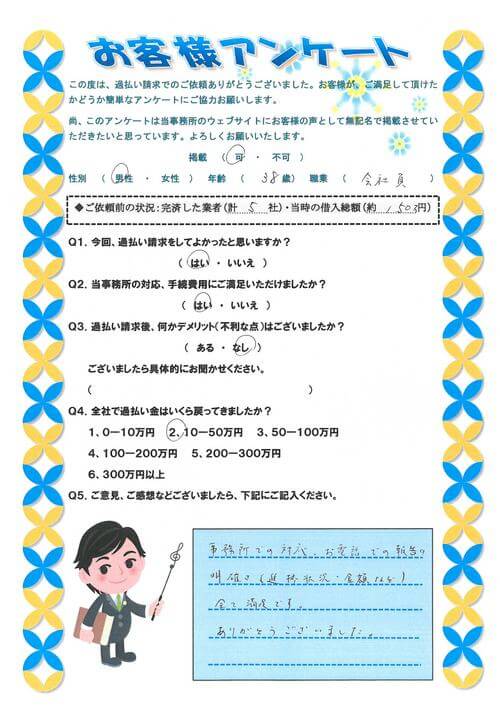 お客様アンケート
この度は、過払い請求でのご依頼ありがとうございました。お客様が、ご満足して頂けた
かどうか簡単なアンケートにご協力お願いします。
尚、このアンケートは当事務所のウェブサイトにお客様の声として無記名で掲載させてい
ただきたいと思っています。よろしくお願いいたします。
掲載 ( 可 ・ 不可 )
性別 ( 男性 ・ 女性 ) 年齢 ( 38 歳) 職業 ( 会社員 )
◆ご依頼前の状況:完済した業者(計 5 社)・当時の借入総額(約 150万円)
Q1. 今回、過払い請求をしてよかったと思いますか?
( はい ・ いいえ )
Q2. 当事務所の対応、手続費用にご満足いただけましたか?
( はい ・ いいえ )
Q3. 過払い請求後、何かデメリット(不利な点)はございましたか?
( ある ・ なし )
ございましたら具体的にお聞かせください。
( )
Q4. 全社で過払い金はいくら戻ってきましたか?
1、0―10万円 2、10―50万円 3、50―100万円
4、100―200万円 5、200―300万円
6、300万円以上
Q5. ご意見、ご感想などございましたら、下記にご記入ください。
事務所での対応・お電話での報告の
明確さ(進捗状況・金額など)
全て満足です。
ありがとうございました。